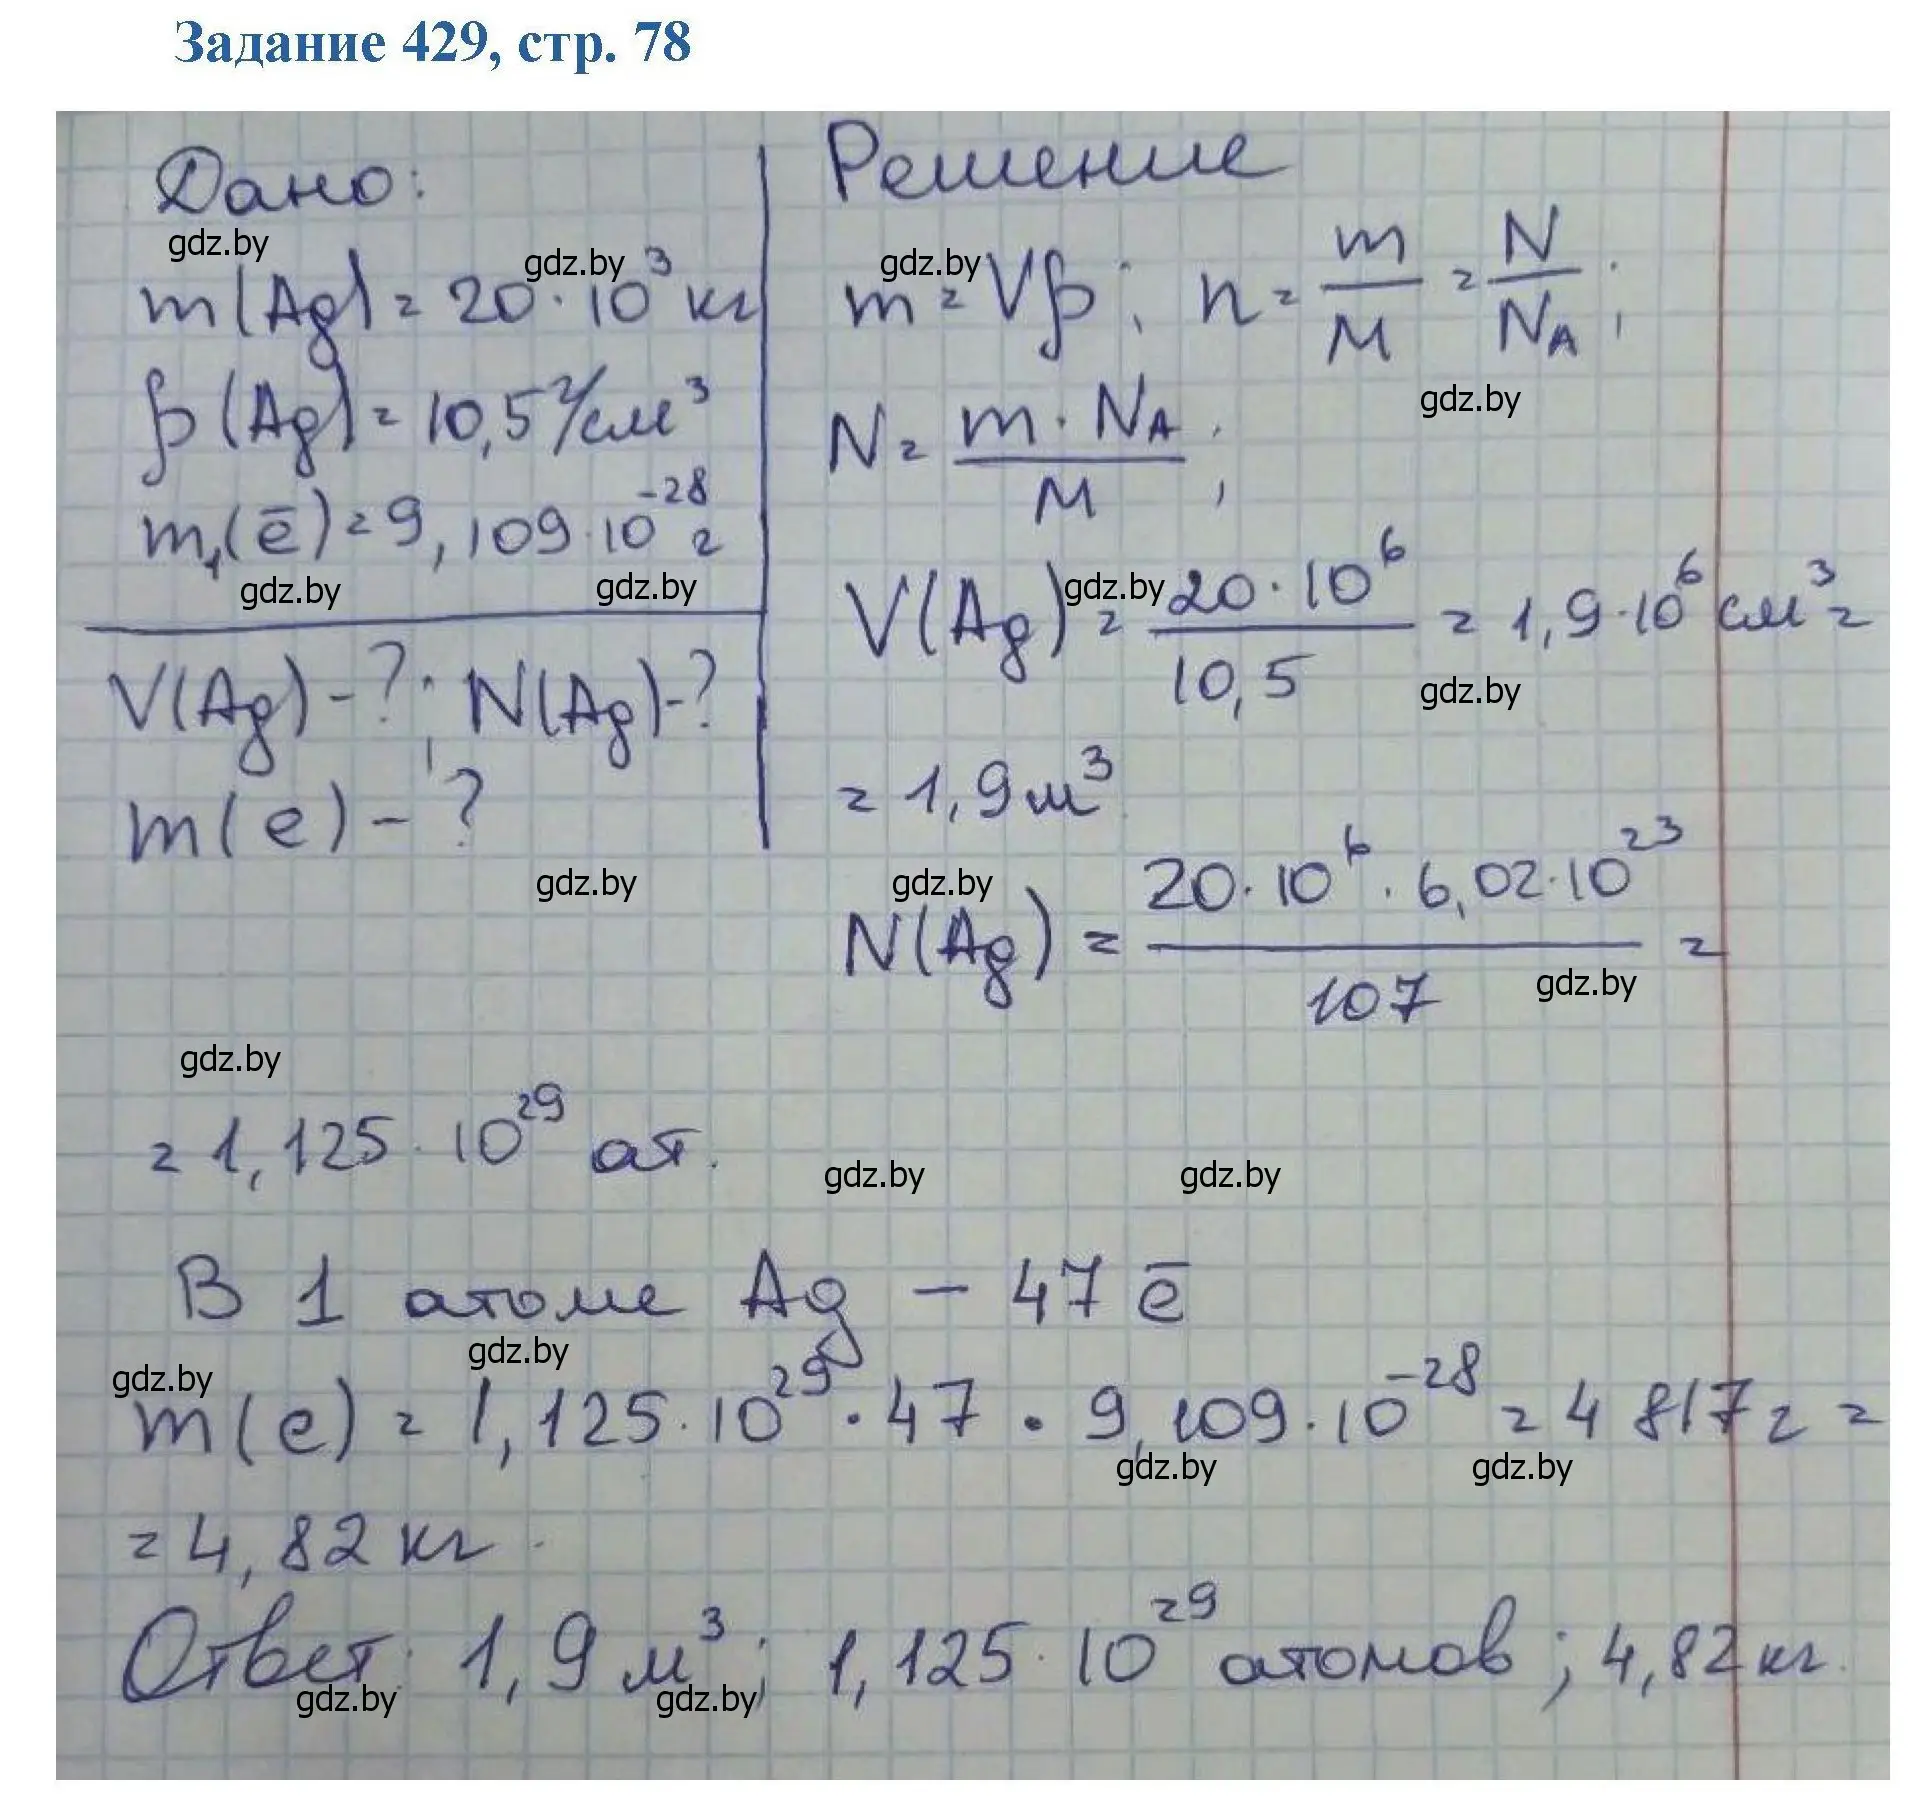 Задание 429, стр. 78
Дано:
gdz.by
m(Ag) = 20·10³ кг
gdz.by
ρ(Ag) = 10,5 г/см³
m₁(ē) = 9,109·10⁻²⁸ г
gdz.by gdz.by
V(Ag) - ?; N(Ag) - ?
m(e) - ?
gdz.by
Решение
gdz.by
m = Vρ; n = m/M = N/Nᴀ;
gdz.by
N = m·Nᴀ/M;
gdz.by
V(Ag) = 20·10⁶/10,5 = 1,9·10⁶ см³ =
gdz.by
= 1,9 м³
gdz.by
N(Ag) = 20·10⁶·6,02·10²³/107 =
gdz.by
gdz.by
= 1,125·10²⁹ ат.
gdz.by gdz.by
В 1 атоме Ag – 47 ē
gdz.by
gdz.by
m(e) = 1,125·10²⁹·47·9,109·10⁻²⁸ = 4817 г =
gdz.by gdz.by
= 4,82 кг.
Ответ: 1,9 м³; 1,125·10²⁹ атомов; 4,82 кг.
gdz.by gdz.by